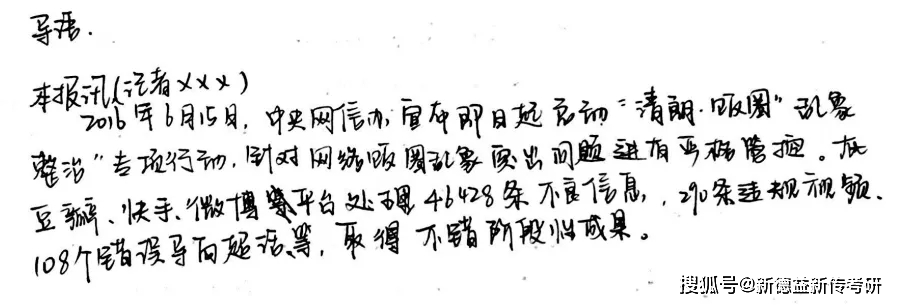 导语.
本报讯(记者×××)
2016年6月15日,中央网信办宣布即日起启动“清朗·饭圈”乱象
整治”专项行动,针对网络饭圈乱象突出问题进行严格管控。在
豆瓣、快手、微博等平台处理46428条不良信息,290条违规视频、
108个错误导向超话等,取得不错阶段性成果。
搜狐号@新德益新传考研